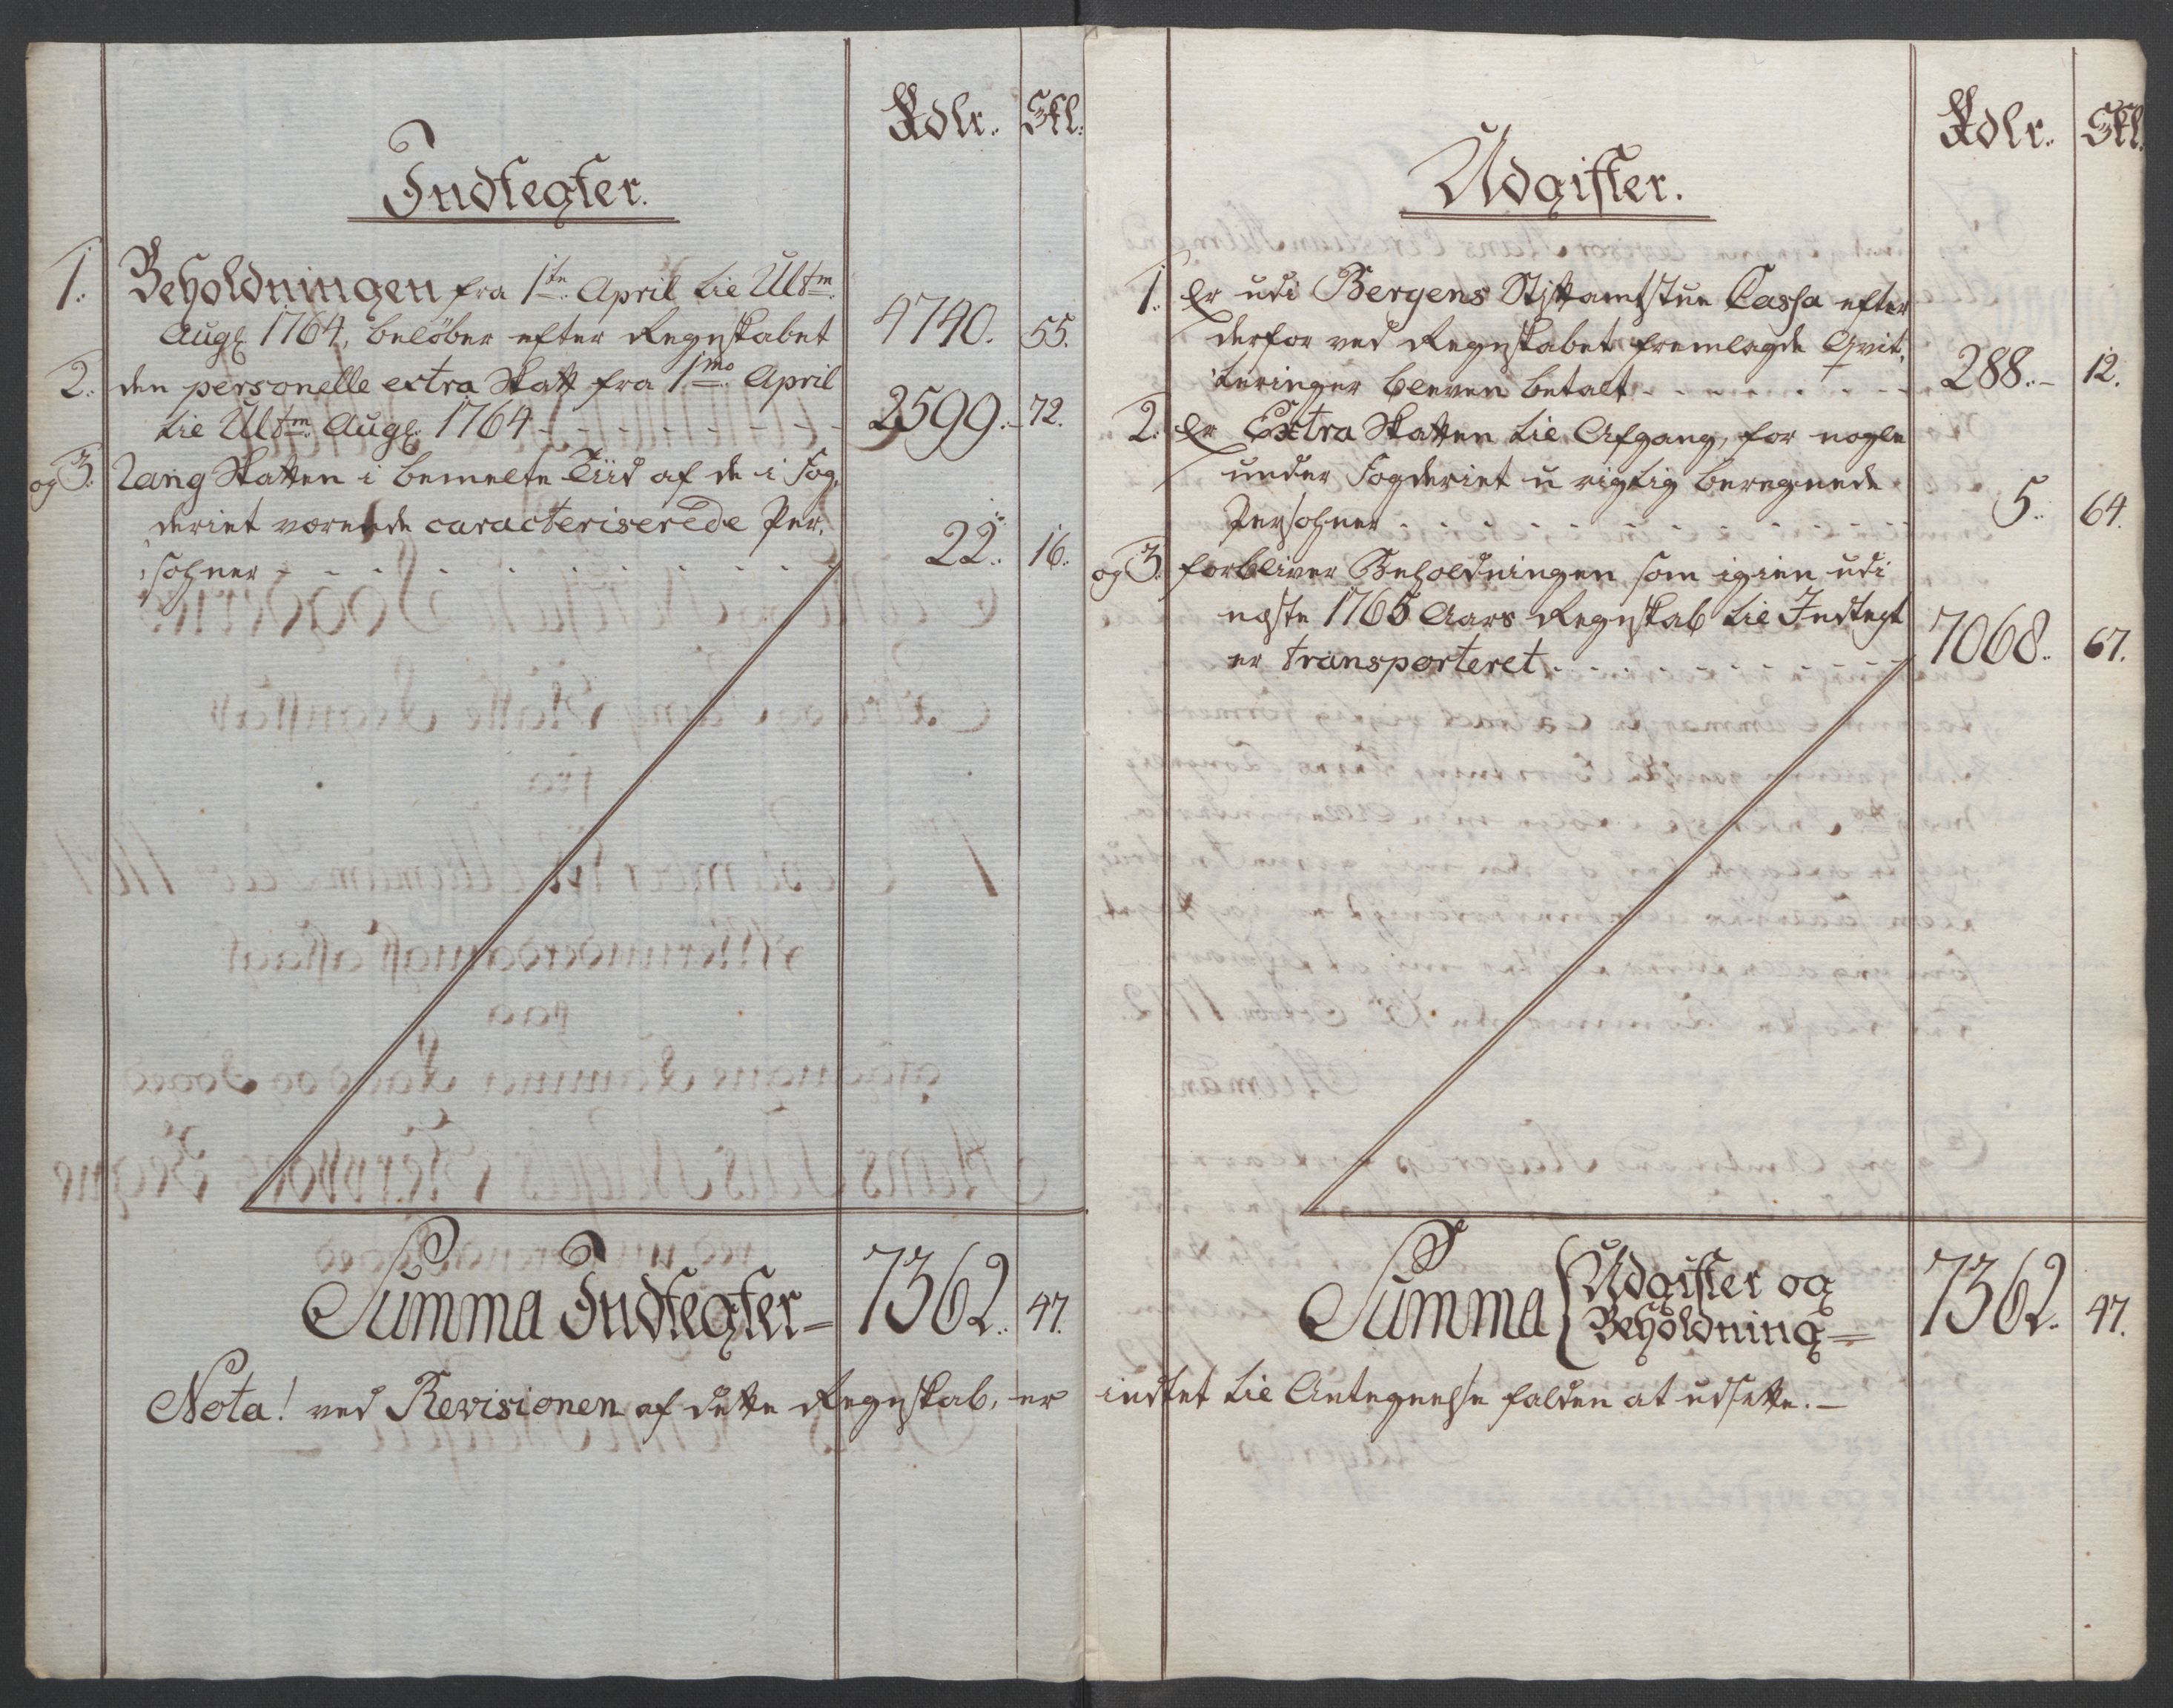 Rdlr. Skl.
Indtegter.
1. Beholdningen fra 1te April til Ultm.
Aug. 1764, beløber efter Regnskabet 4740. 55.
2. den personelle extra Skatt fra 1mo April
til Ultm. Aug. 1764 - - - - - - - - 2599. 72.
og 3. Rang Skatten i bemelte Tiid af de i Fog,
deriet værende caracteriserede Per,
sohner - - - - - - - - - 22. 16.
Summa Indtegter = 7362. 47.
Rdlr. Skl.
Udgifter.
1. Er udi Bergens Stiftamtstue Cassa efter
derfor ved Regnskabet fremlagde Qvit,
teringer bleven betalt - - - - - - - 288. 12.
2. Er Extra Skatten til Afgang, for nogle
under Fogderiet u rigtig beregnede
Persohner - - - - - - - - - 5. 64.
og 3. forbliver Beholdningen som igien udi
næste 1765 Aars Regnskab til Indtegt
er transporteret - - - - - - - 7068. 67.
Summa { Udgifter og
Beholdning = 7362. 47.
Nota! ved Revisionen af dette Regnskab, er indtet til Antegnelse falden at udsette. -